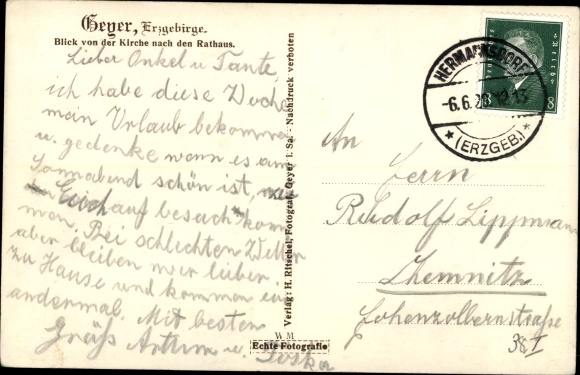 Geyer, Erzgebirge.
Blick von der Kirche nach den Rathaus.
Lieber Onkel u Tante,
ich habe diese Woche
mein Urlaub bekommen
u. gedenke wenn es am
Sonnabend schön ist,
Euch auf besuch kom
men. Bei schlechten Wetter
aber bleiben wir lieber
zu Hause und kommen ein
andermal. Mit besten
Grüß Arthur u.
Verlag: H. Ritschel, Fotograf, Geyer i. Sa. - Nachdruck verboten
W M
Echte Fotografie
HERMANNSDORF
-6.6.28 12-13
* (ERZGEB.) *
8
An
Herrn
Rudolf Lippmann
Chemnitz
Hohenzollernstraße
38 I